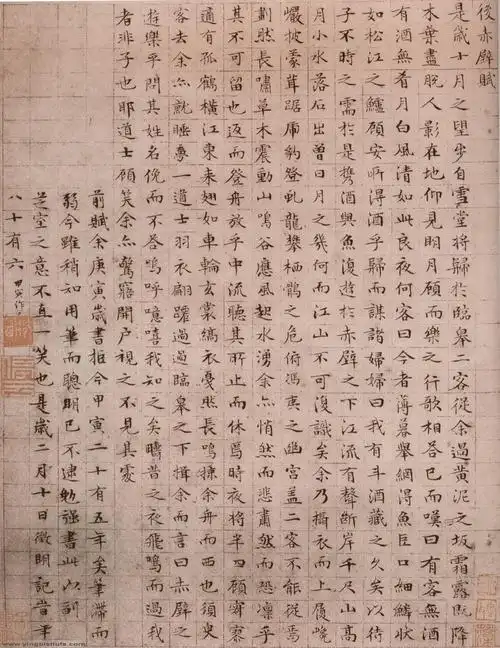 後赤壁賦
是歲十月之望步自雪堂將歸於臨皋二客從余過黃泥之坂霜露既降
木葉盡脫人影在地仰見明月顧而樂之行歌相答已而嘆曰有客無酒
有酒無肴月白風清如此良夜何客曰今者薄暮舉網得魚巨口細鱗狀
如松江之鱸顧安所得酒乎歸而謀諸婦婦曰我有斗酒藏之久矣以待
子不時之需於是攜酒與魚復遊於赤壁之下江流有聲斷岸千尺山高
月小水落石出曾日月之幾何而江山不可復識矣余乃攝衣而上履巉
巖披蒙茸踞虎豹登虬龍攀栖鶻之危俯馮夷之幽宮蓋二客不能從焉
劃然長嘯草木震動山鳴谷應風起水湧余亦悄然而悲肅然而恐凜乎
其不可留也返而登舟放乎中流聽其所止而休焉時夜將半四顧寂寥
適有孤鶴橫江東來翅如車輪玄裳縞衣戛然長鳴掠余舟而西也須臾
客去余亦就睡夢一道士羽衣翩躚過臨皋之下揖余而言曰赤壁之
遊樂乎問其姓名俛而不答嗚呼噫嘻我知之矣疇昔之夜飛鳴而過我
者非子也耶道士顧笑余亦驚寤開戶視之不見其處
前賦余庚寅歲書抵今甲寅二十有五年矣筆滯而
弱今雖稍知用筆而聰明已不逮勉強書此以副
芝室之意不直一笑也是歲二月十日徵明記當年
八十有六
www.yingbishufa.com